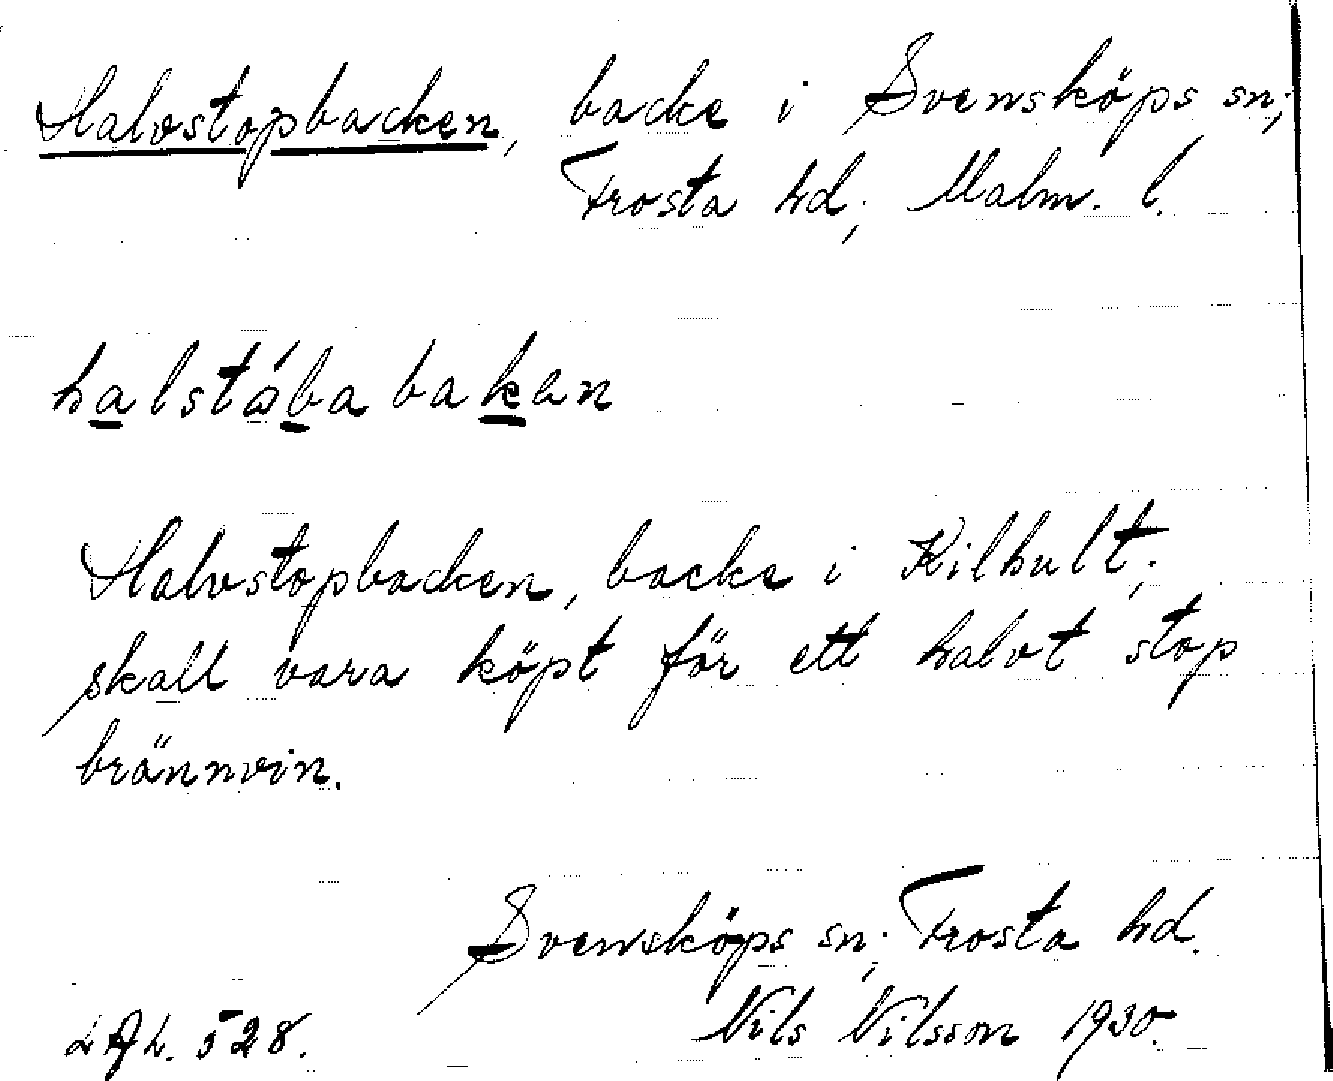 Halvstopbacken, backe i Svensköps sn;
Frosta hd; Malm. l.
halståba bakan
Halvstopbacken, backe i Kilhult;
skall vara köpt för ett halvt stop
brännvin.
Svensköps sn; Frosta hd.
Nils Nilsson 1930.
528.